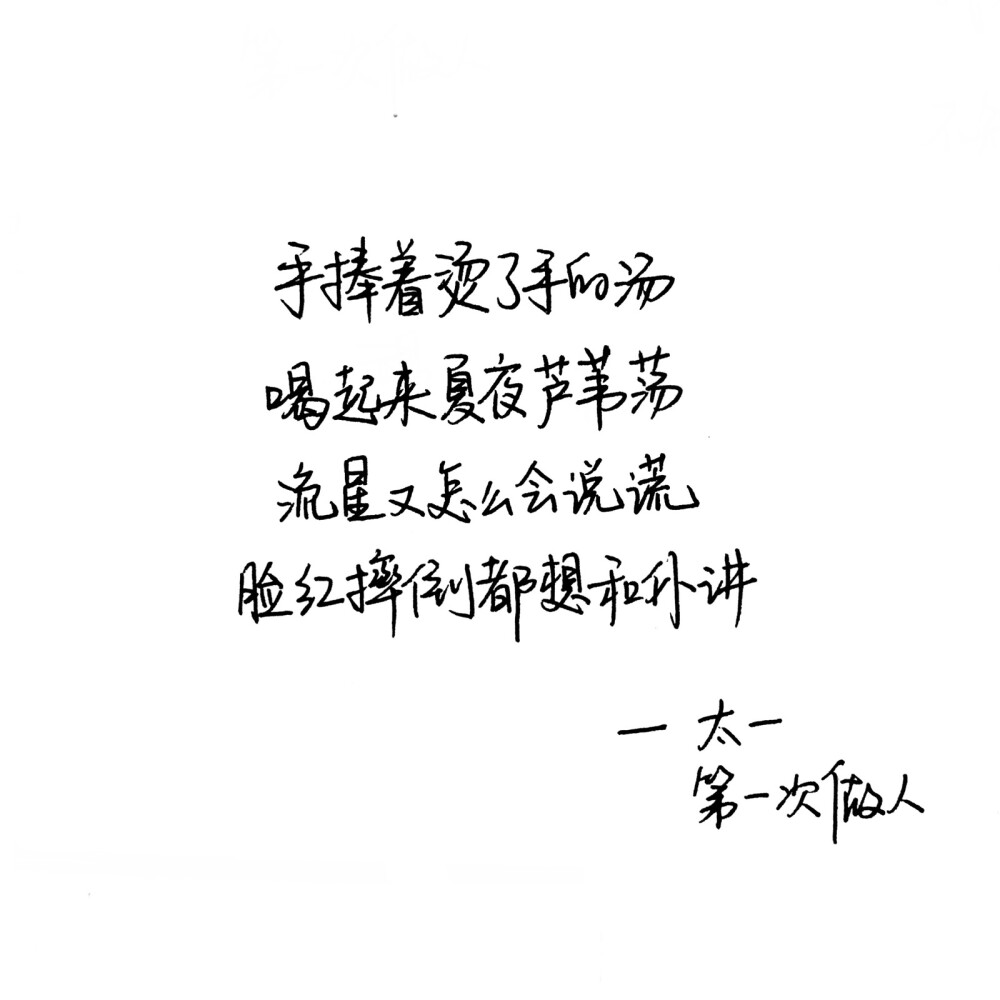 手捧着烫了手的汤
喝起来夏夜芦苇荡
流星又怎么会说谎
脸红摔倒都想和你讲
— 太一
第一次做人